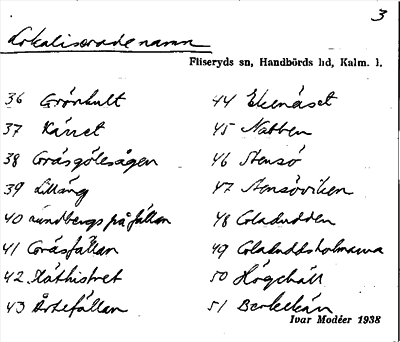 3
Lokaliserade namn
Fliseryds sn, Handbörds hd, Kalm. l.
36 Grönhult
37 Kärret
38 Gråsgölesågen
39 Lilläng
40 Lundbergs på fällan
41 Gråsfällan
42
43 Ärtefällan
44 Ekenäset
45 Nabben
46 Stensö
47 Stensöviken
48 Coladudden
49 Coladuddsholmarna
50 Högehäll
51
Ivar Modéer 1938